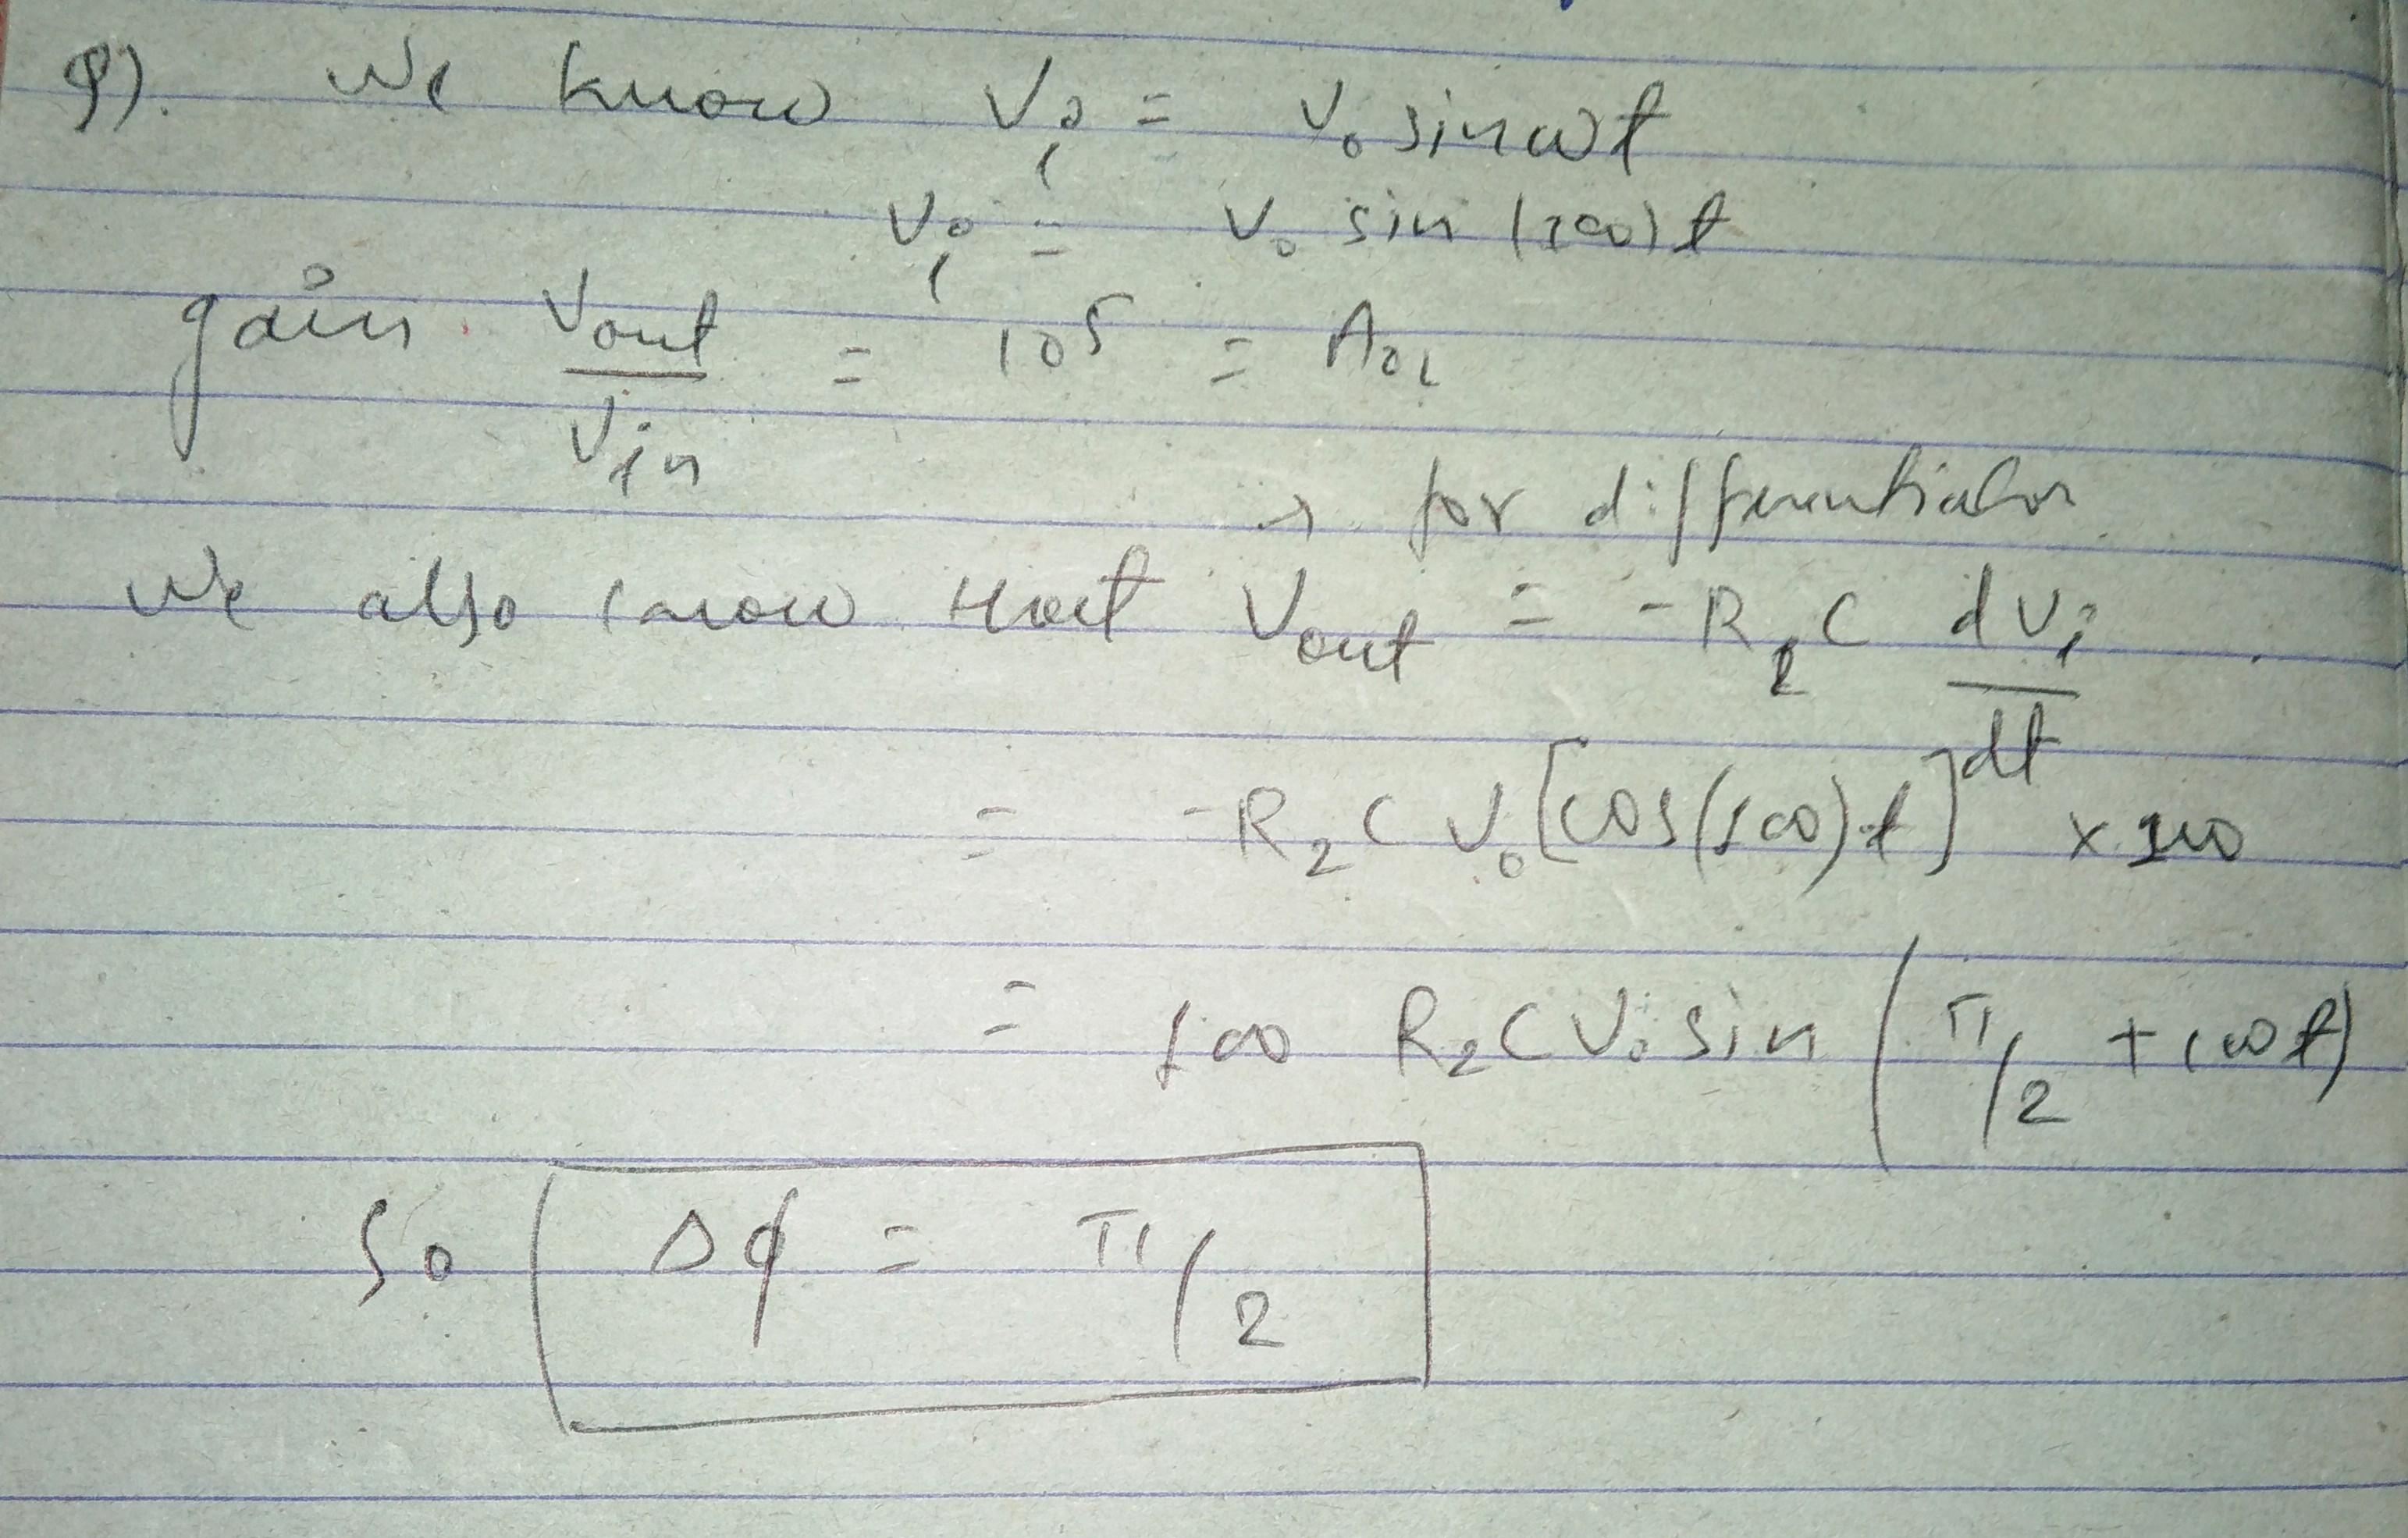 9). We know Vi = V₀ sinωt
Vi = V₀ sin (100)t
gain Vout/Vin = 10⁵ = AOL
→ for differentiator
We also know that Vout = -R₂C dVi/dt
= -R₂CV₀[cos(100)t] × 100
= 100 R₂CV₀ sin(π/2 + 100t)
So Δφ = π/2